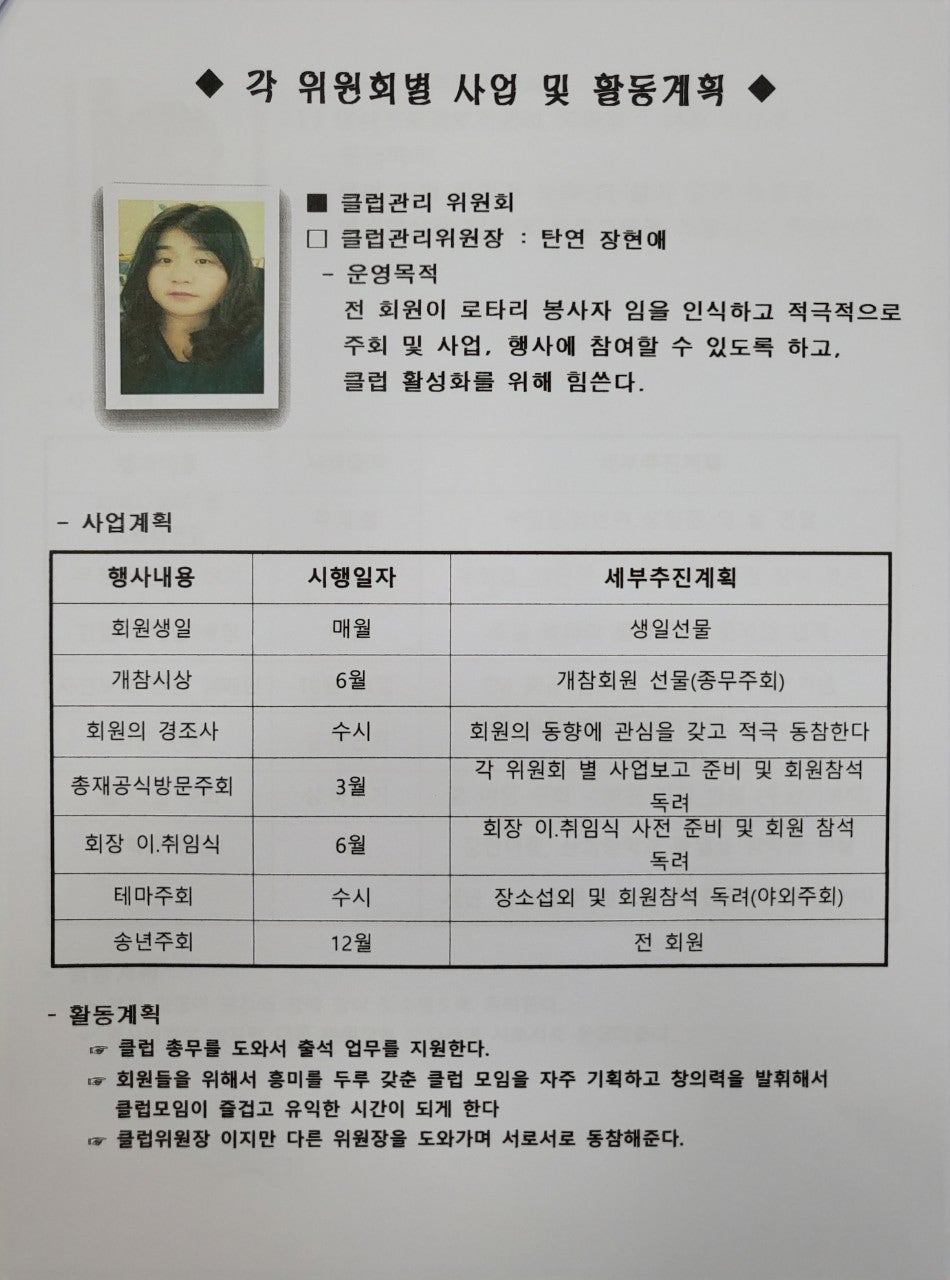 ◆ 각 위원회별 사업 및 활동계획 ◆
■ 클럽관리 위원회
□ 클럽관리위원장 : 탄연 장현애
- 운영목적
전 회원이 로타리 봉사자 임을 인식하고 적극적으로
주회 및 사업, 행사에 참여할 수 있도록 하고,
클럽 활성화를 위해 힘쓴다.
- 사업계획
행사내용 시행일자 세부추진계획
회원생일 매월 생일선물
개참시상 6월 개참회원 선물(종무주회)
회원의 경조사 수시 회원의 동향에 관심을 갖고 적극 동참한다
총재공식방문주회 3월 각 위원회 별 사업보고 준비 및 회원참석
독려
회장 이.취임식 6월 회장 이.취임식 사전 준비 및 회원 참석
독려
테마주회 수시 장소섭외 및 회원참석 독려(야외주회)
송년주회 12월 전 회원
- 활동계획
☞ 클럽 총무를 도와서 출석 업무를 지원한다.
☞ 회원들을 위해서 흥미를 두루 갖춘 클럽 모임을 자주 기획하고 창의력을 발휘해서
클럽모임이 즐겁고 유익한 시간이 되게 한다
☞ 클럽위원장 이지만 다른 위원장을 도와가며 서로서로 동참해준다.